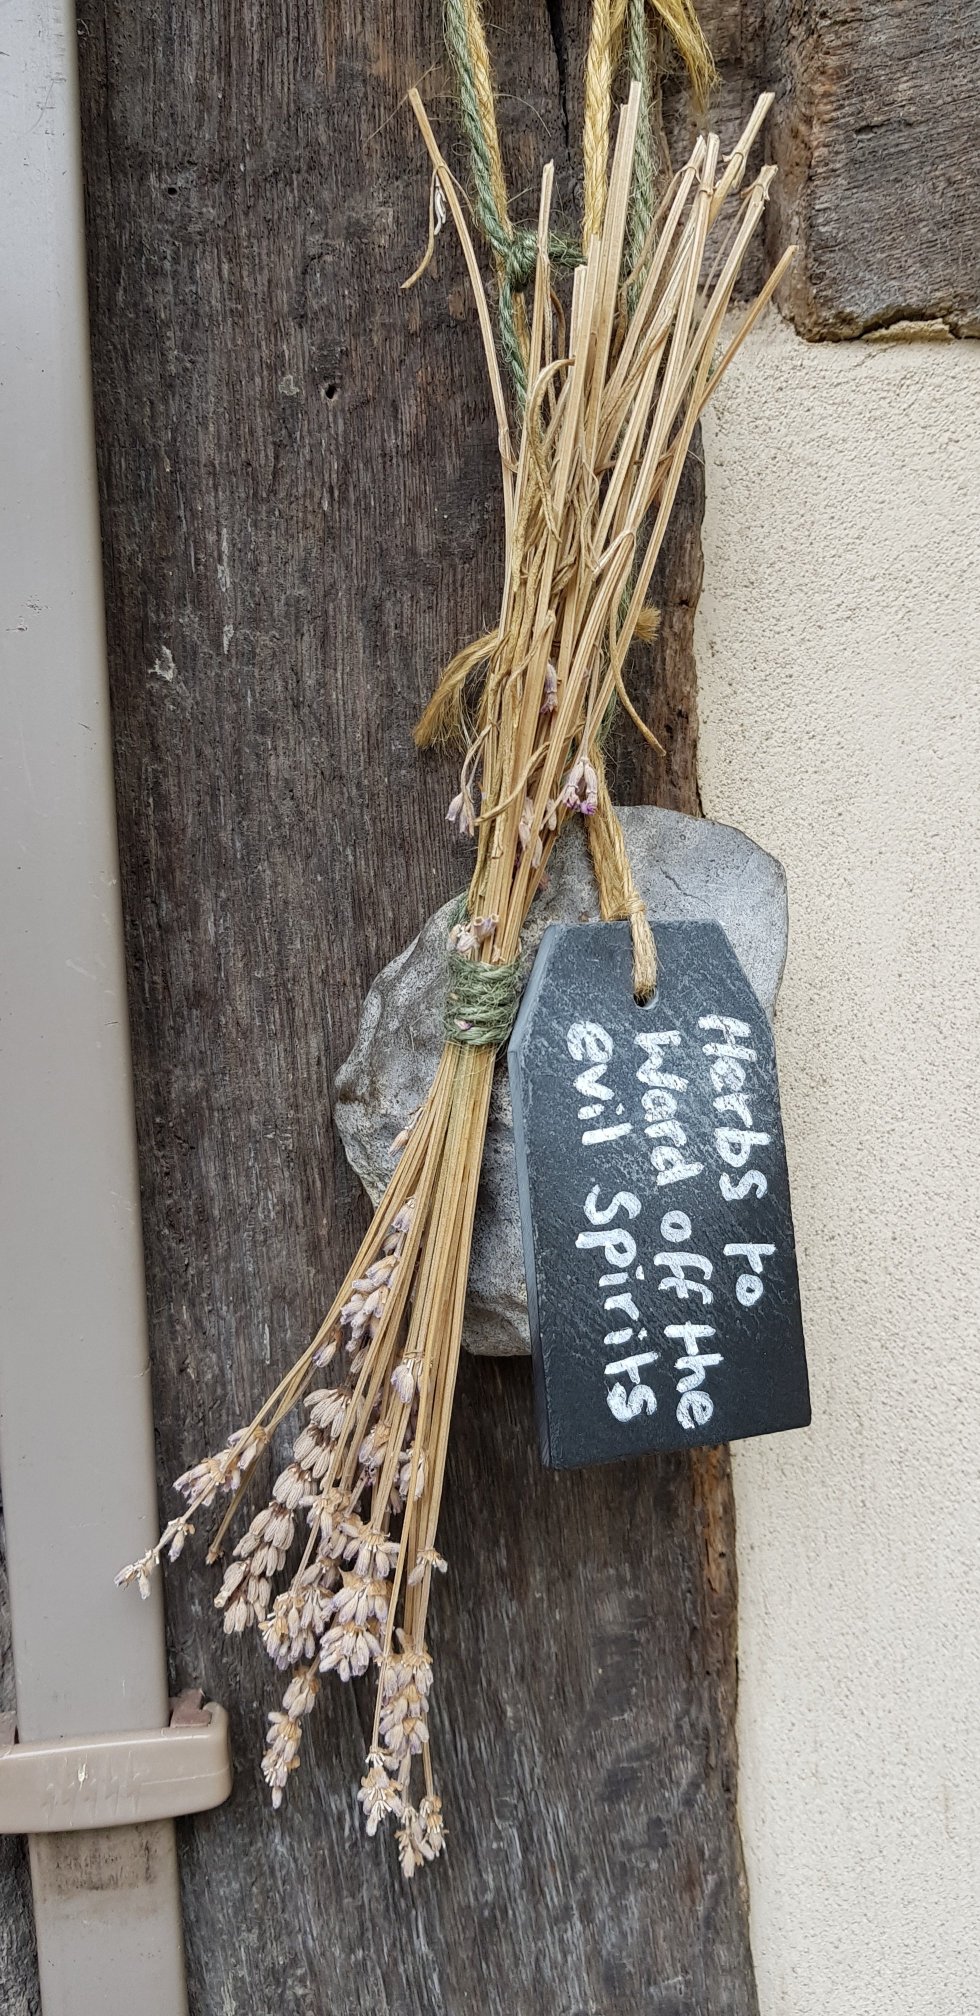 Herbs to
Ward off the
evil Spirits